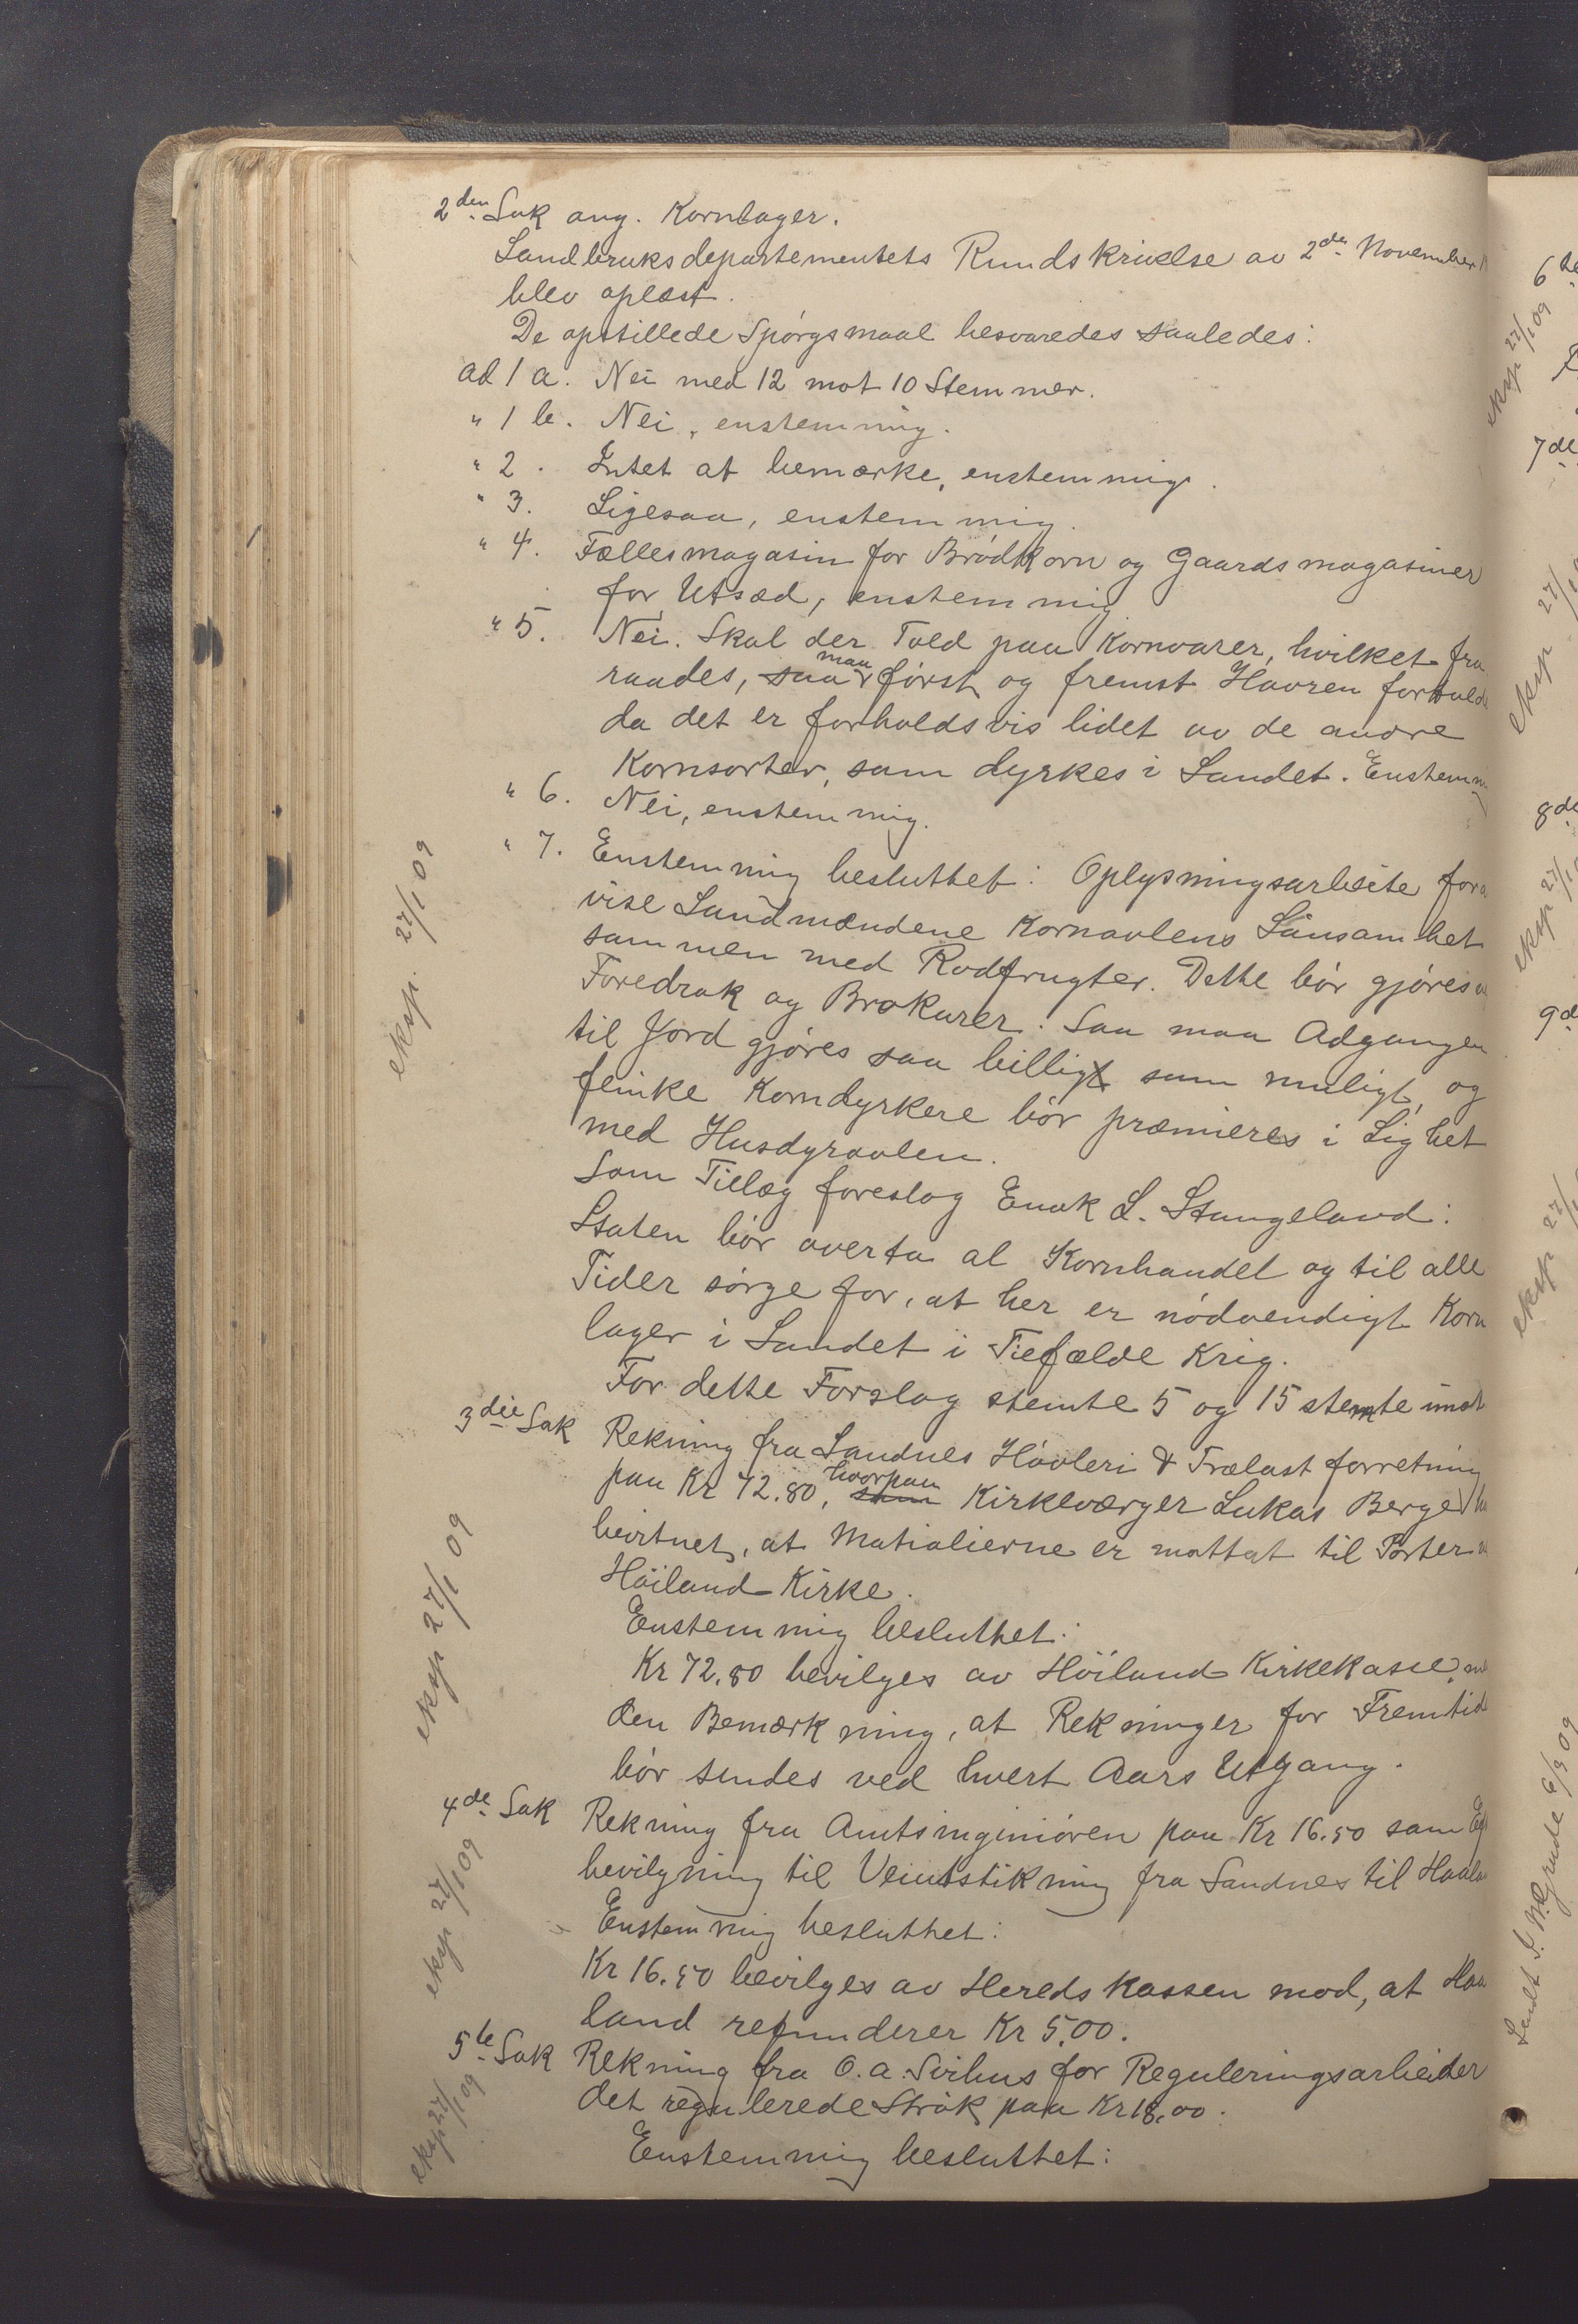 2den Sak ang. Kornlager.
Landbruksdepartementets Rundskrivelse av 2den November
blev oplæst.
De opstillede Spörgsmaal besvaredes saaledes:
ad 1 a. Nei med 12 mot 10 Stemmer.
" 1 b. Nei, enstemmig.
" 2. Intet at bemærke, enstemmig.
" 3. Ligesaa, enstemmig.
" 4. Fællesmagasin for Brödkorn og Gaardsmagasiner
for Utsæd, enstemmig
" 5. Nei. Skal der Told paa Kornvarer, hvilket fra
raades, saa maa först og fremst Havren fortolde
da det er forholdsvis lidet av de andre
Kornsorter, som dyrkes i Landet. Enstemmi
" 6. Nei, enstemmig.
" 7. Enstemmig besluttet: Oplysningsarbeite for a
vise Landmændene Kornavlens Lönsomhet
sammen med Rodfrugter. Dette bör gjöres
Foredrak og Brokurer. Saa maa Adgangen
til Jord gjöres saa billigt som muligt, og
flinke Korndyrkere bör præmieres i Lighet
med Husdyravlen.
Som Tillæg foreslog Enok L. Stangeland:
Staten bör overta al Kornhandel og til alle
Tider sörge for, at her er nödvendigt Korn
lager i Landet i Tilfælde Krig.
For dette Forslag stemte 5 og 15 stemte imot
eksp. 27/1 09
3die Sak Rekning fra Sandnes Hövleri & Trælast forretning
paa Kr 72.80, som hvorpaa Kirkeværger Lukas Berge
bevitnet, at Matialierne er mottat til Porter
Höiland Kirke.
Enstemmig besluttet:
Kr 72.80 bevilges av Höiland Kirkekasse, m
den Bemærkning, at Rekninger for Fremtid
bör sendes ved hvert Aars Utgang.
eksp 27/1 09
4de Sak Rekning fra Amtsingeniören paa Kr 16.50 som
bevilgning til Veiutstikning fra Sandnes til Haala
Enstemmig besluttet:
Kr 16.50 bevilges av Heredskassen mod, at Haa
land refunderer Kr 5.00.
eksp 27/1 09
5te Sak Rekning fra O. a. Sirihus for Reguleringsarbeider
det regulerede Strök paa Kr 18.00.
Enstemmig besluttet:
eksp 27/1 09
6te
eksp 27/1 09
7de
eksp 27/1
8de
eksp 27/1
9d
eksp 27/1